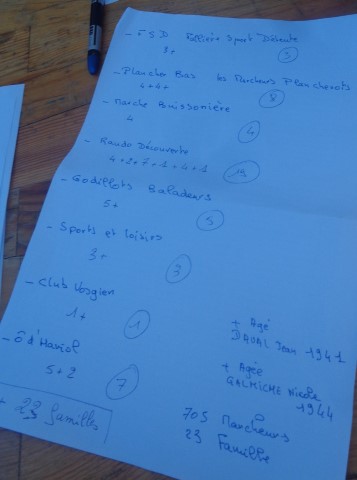 - E S D Sport Détente
3+
3
- Plancher Bas les Marcheurs Plancherots
4+4+
8
- Marche Buissonière
4
4
- Rando Découverte
4+2+7+1+4+1
19
- Godillots Baladeurs
5+
5
- Sports et loisirs
3+
3
- Club Vosgien
1+
1
- Ô d'Haniol
5+2
7
+ Agé
BADAL Jean 1941
+ Agée
GALMICHE Nicole
1944
+ 23 familles
705 Marcheurs
23 Famille